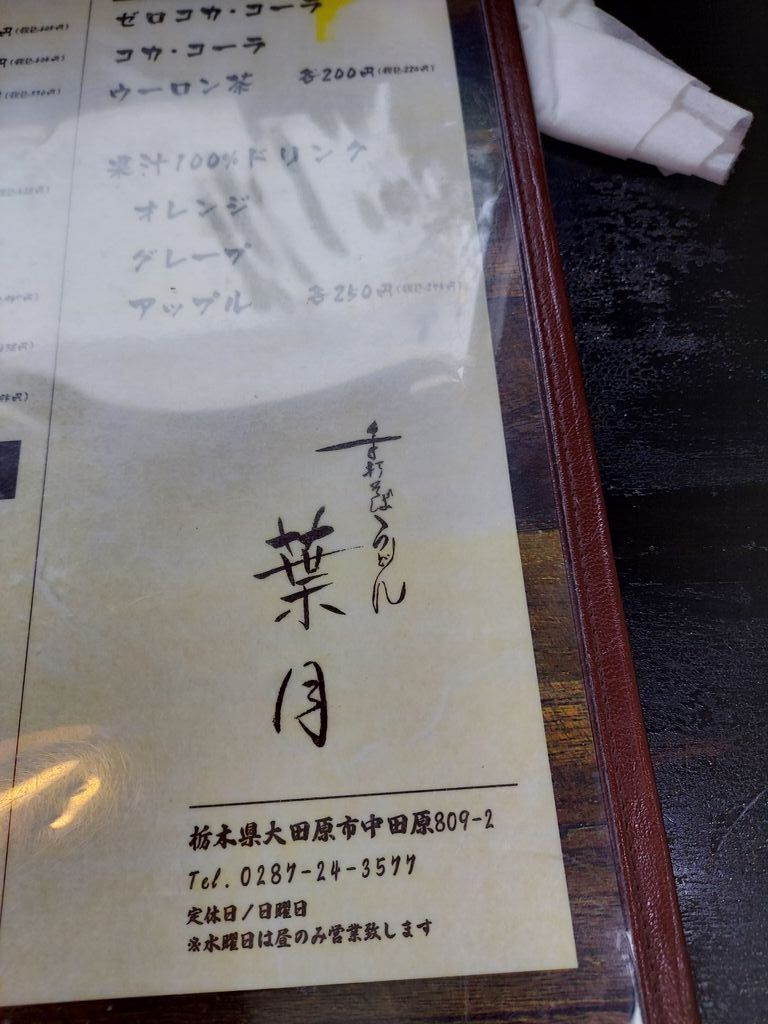 ゼロコカ・コーラ
コカ・コーラ
ウーロン茶 各200円(税込220円)
果汁100%ドリンク
オレンジ
グレープ
アップル 各250円
手打そばうどん
葉月
栃木県大田原市中田原809-2
Tel. 0287-24-3577
定休日/日曜日
※水曜日は昼のみ営業致します